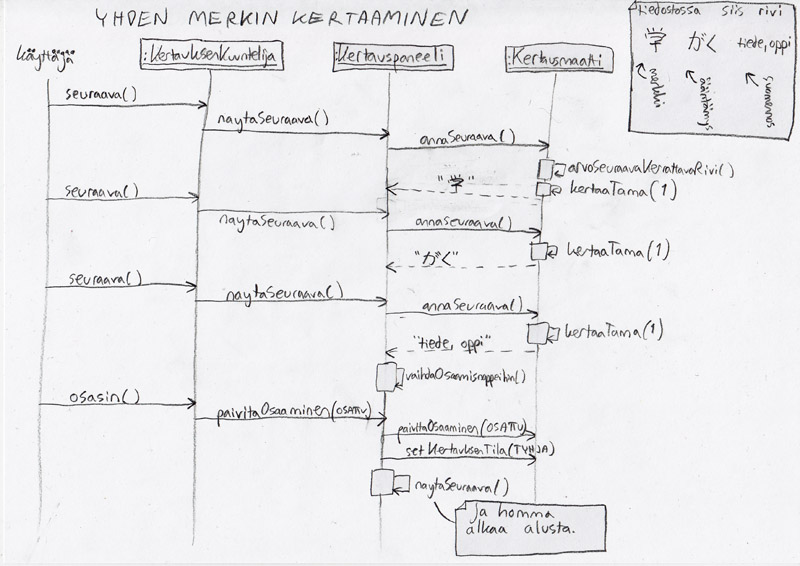 YHDEN MERKIN KERTAAMINEN
tiedostossa siis rivi
学 がく tiede, oppi
merkki ääntämys suomennos
käyttäjä :KertauksenKuuntelija :Kertauspaneeli :Kertausmaatti
seuraava()
naytaSeuraava()
annaSeuraava()
arvoSeuraavaKerrattavaRivi()
"学"
kertaaTama(1)
seuraava()
naytaSeuraava()
annaSeuraava()
kertaaTama(1)
"がく"
seuraava()
naytaSeuraava()
annaSeuraava()
kertaaTama(1)
"tiede, oppi"
vaihdaOsaamisnappeihin()
osasin()
paivitaOsaaminen(OSATTU)
paivitaOsaaminen(OSATTU)
setKertauksenTila(TYHJA)
naytaSeuraava()
Ja homma
alkaa alusta.